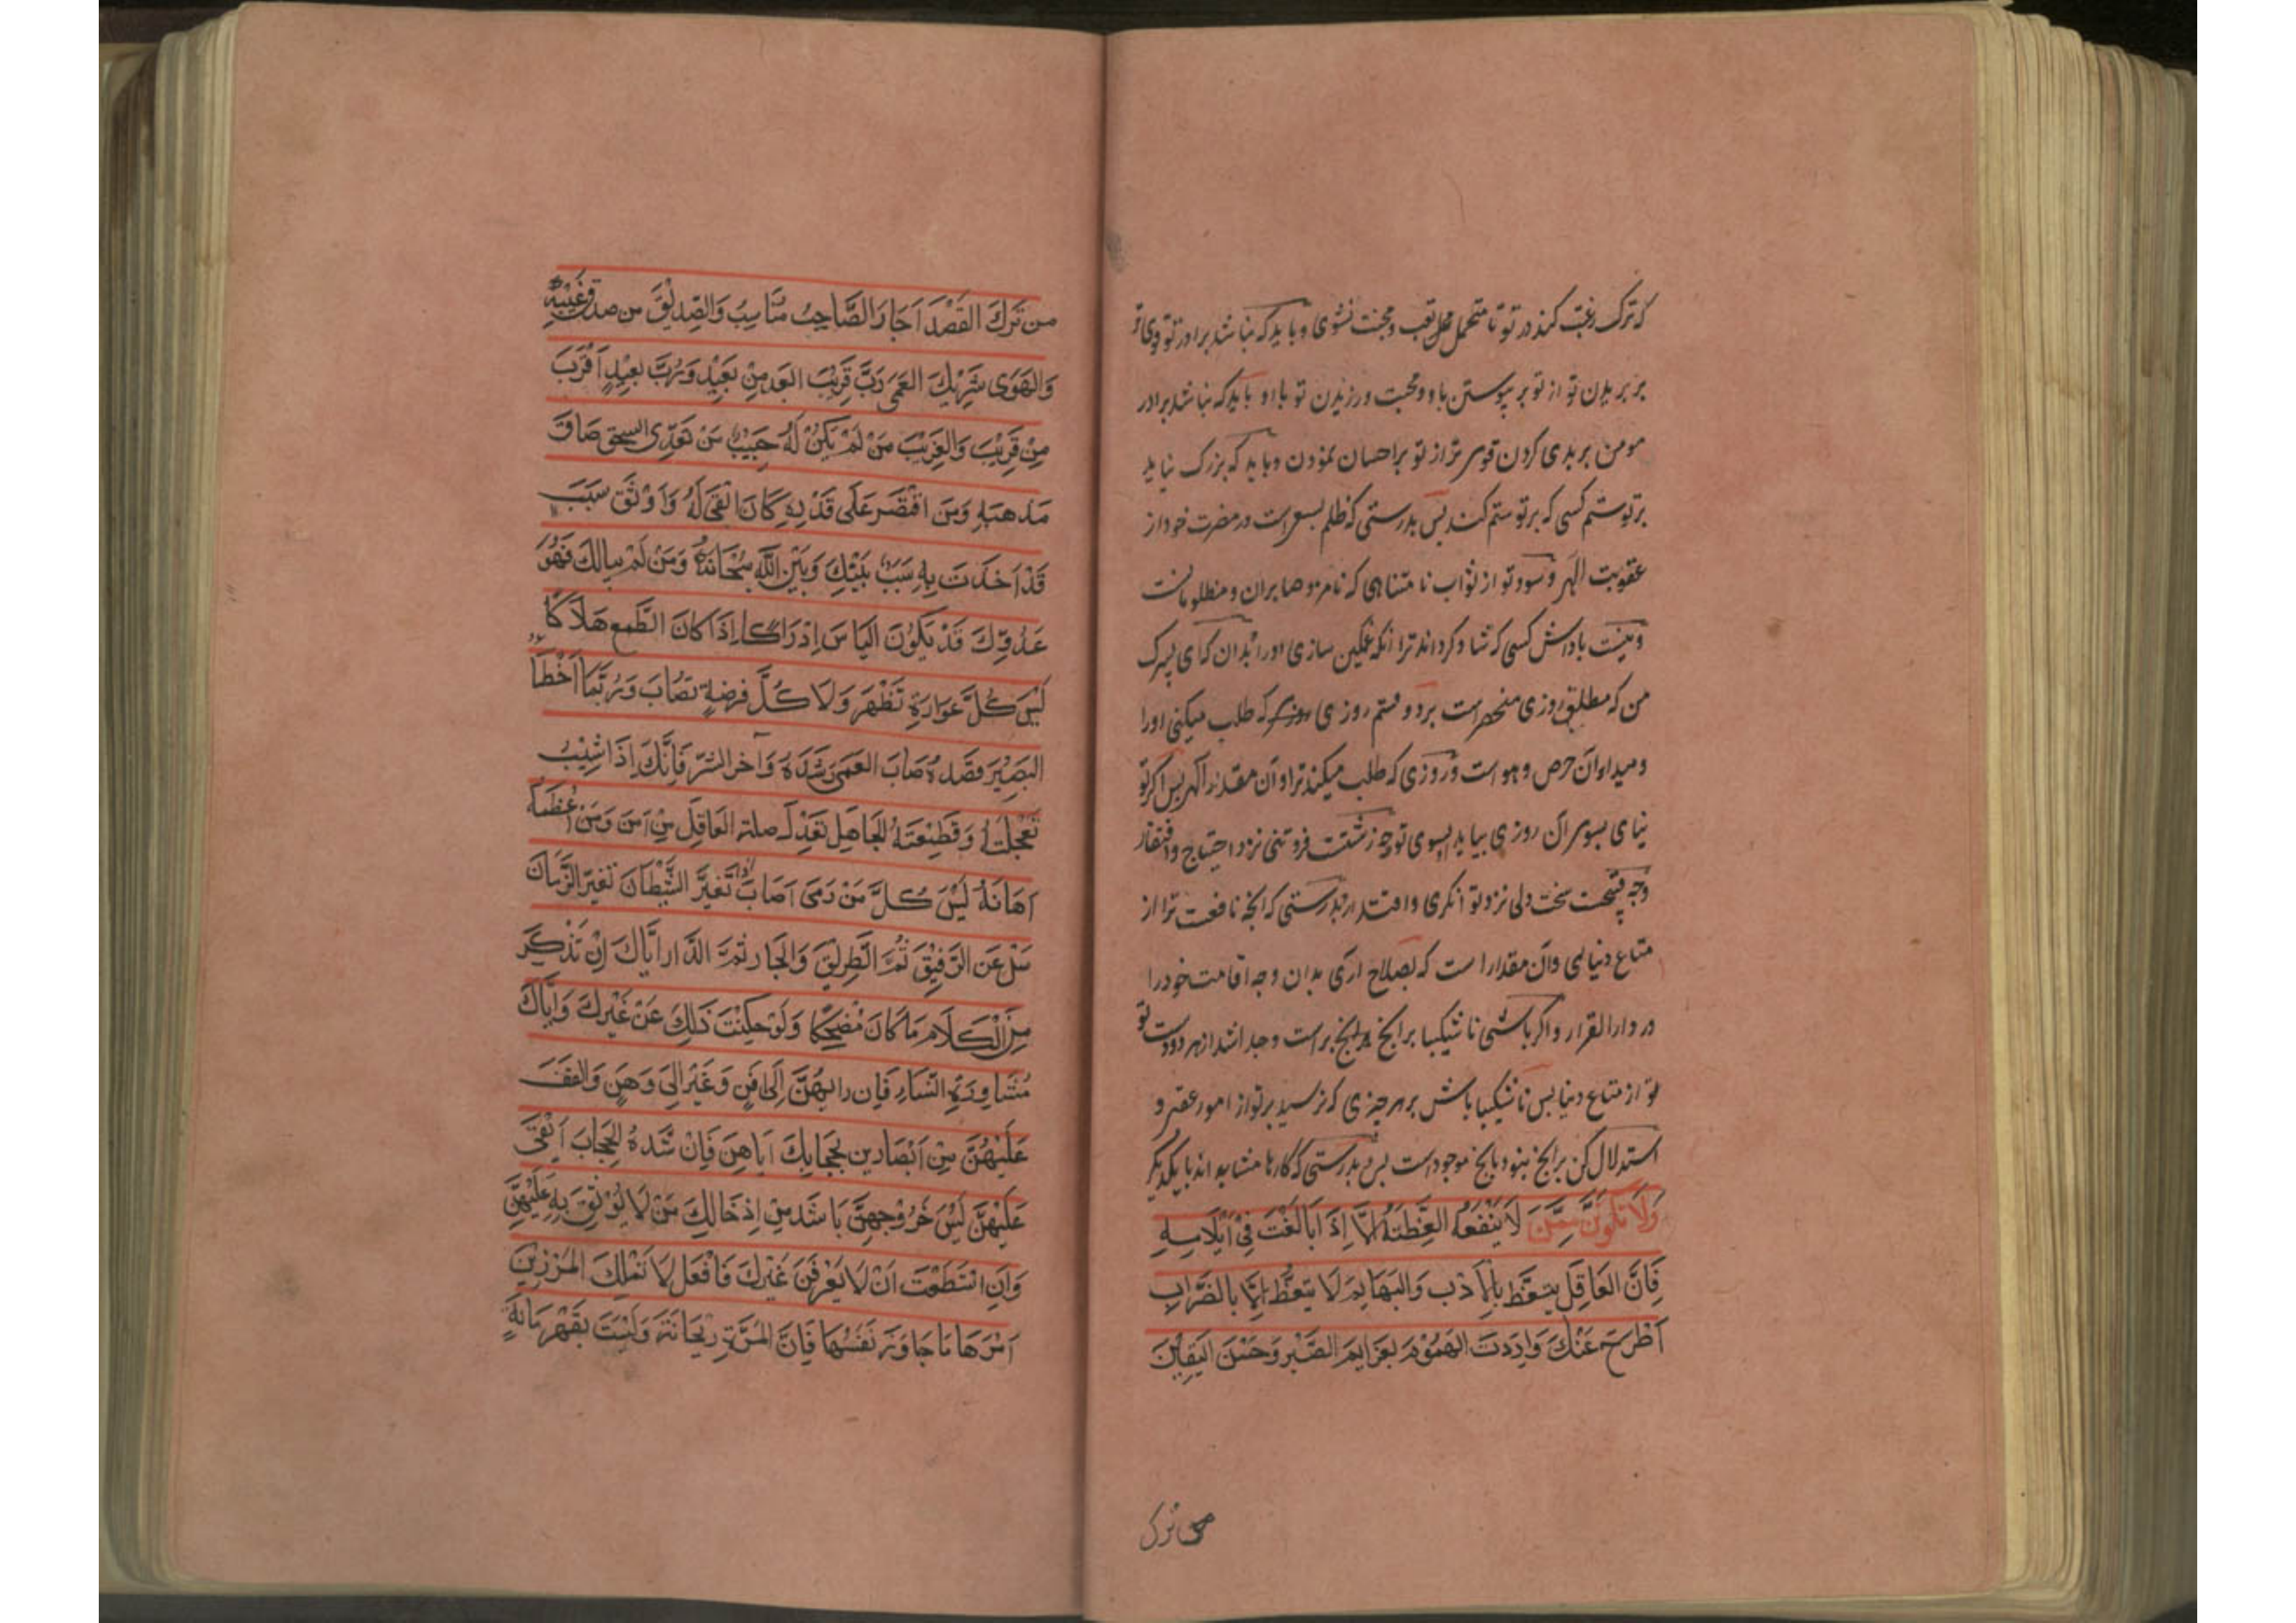 که ترک رغبت کند در تو تا متحمل محل تعب و محنت نشوی و باید که نباشد برادر تو قوی تر
بر بریدن تو از تو بر پیوستن با و و محبت ورزیدن تو با او باید که نباشد برادر
مومن بر بدی کردن قوی تر از تو بر احسان نمودن و باید که بزرک نیاید
بر تو ستم کسی که بر تو ستم کند پس بدرستی که ظلم یسعی است در مضرت خود از
عقوبت الهی و سود تو از ثواب نا متناهی که نامزد صابران و مظلومانست
و نیست باداش کسی که شاد کرداند ترا انکه غمکین سازی او را بدان که ای پسرک
من که مطلق روزی منحصر است بر دو قسم روزی که طلب میکنی او را
و میدا و ان حرص و هوا است و روزی که طلب میکند ترا و آن مقدر الهی پس اکر تو
نیای بسوی آن روزی بیاید بسوی تو چه زشتست فروتنی نزد احتیاج و افتقار
و چه قبیحست سخت دلی نزد توانکری و اقتدار بدرستی که انچه نافعست ترا از
متاع دنیایی و آن مقدار است که بصلاح اری بدان وجه اقامت خود را
در دار القرار و اکر باشی نا شکیبا بر انچ بر است و جدا شد از هر دو دست تو
تو از متاع دنیا پس نا شکیبا باش بر هر چیزی که نرسید بر تو از امور عقبی و
استدلال کن بر انچ نبود بانچ موجود است پس بدرستی که کارها مشابه اند با یکدیکر
وَلَا تَكُونَنَّ مِمَّنْ لَا يَنْفَعُهُ العِظَتَهُ اِلَّا اِذَا بَالَغْتَ فِىْ اِيْلَامِهِ
فَاِنَّ العَاقِلَ يتعَّظ بِالْاَدَبِ وَالبَهَايِمَ لَا يتعَّظُ اِلَّا بِالضَّرَابِ
اَطْرَحَ عَنْكَ وَارِدَتَ الهُمُوْمِ بعَزَايِمَ الصَّبْرِ وَحَسْنَ اليَقِيْنَ
من ترك
من تَرَكَ القَصْدَ اَجَارَ الصَّاحِبُ مُنَاسِبُ وَالصِّدِيْقَ من صدق غَيْبَهُ
وَالهَوَى شَرِيْكَ العَمَى رَبَّ قَرِيْبَ ابعَد مِنْ بَعِيْدٍ وَرُبَّ بعِيْدٍ اَقْرَبَ
مِنْ قَرِيْبَ وَالغَرِيْبَ مَنْ لَمْ يَكُنْ لَهُ حَبِيْبٌ مَنْ تَعَدَّى السحق ضَاقَ
مَذهبَهِ وَمَنَ اقْتَصَرَ عَلَى قَدْرِهِ كَانَ اَبقَى لَهُ وَاَوْثَق سَبَبَ
قَدْ اَخَذَتَ بِهِ سَبَبٌ بَيْنَكَ وَبَيْنَ اللهِ سُبْحَانَهُ وَمَنْ لَمْ يبالكَ فَهُوَ
عَدُوِّكَ قَدْ يَكُوْنَ اليَاسَ اِدْرَاكًا اِذَا كَانَ الطَّمع هَلَاكًا
لَيْسَ كُلَّ عَوَارَةٍ تَظْهَرَ وَلَا كُلَّ فرصَةٍ تصَابَ وَرُبَّمَا اَخْطَا
البَصِيْرَ قصَدهُ وَصَابَ العَمىَ رشْدَهُ وَاخر الشرّ فَاِنَّكَ اِذَا شِئْتَ
تعَجلتهُ وَقَطِيْعَتَهُ الجَاهِلِ تعَدْلَ صلته العَاقِل مَنْ اَمِنَ وَمَنْ اَعْظَمهُ
اَهَانَهُ لَيْسَ كُلَّ مَنْ رَمَى اَصَابَ اذا تَغَيرَّ الشَّيْطَانَ تغَير الزَّمَانَ
سَلْ عَنِ الرَّفِيْقَ ثُمَّ الطَّرِيْقَ وَالجَار ثمَّ الدَّار اِيَّاكَ اِنْ تَذْكِرَ
مِنَ الْكَلَام مَا كَانَ مُضحِكًا وَلَوْ حكيْتَ ذَلِكَ عَنْ غَيْرِكَ وَاِيَّاكَ
مُشَاوِرَةِ النِّسَاءِ فَاِن رايهُنَّ اِلَى اَفَنٍ وَعَزْ اِلَى وَهنٍ وَالفف
عَلَيْهُنَّ مِنْ اَبْصَارِهن بحجَابِكَ اَيَاهِنَّ فَاِنْ شَدهُ الحجَابَ اَبقىَ
عَلَيْهنَّ لَيْسَ خُرُوْجهنَّ بَاشَدّ مِنْ اِدْخَالكَ مَنْ لَا يُوْثقَ بِهِ عَلَيْهنَّ
وَاِنِ اسْتَطعْتَ اَنْ لَا يَعْرِفْنَ غَيْركَ فَافْعَل لَا تَمْلكَ المَرْ مِن
اَمْرهَا مَا جَاوَزَ نَفْسُهَا فَاِنَّ المَرْةَ رَيْحَانَةَ وَلَيْسَتَ بقَهْرمَانَةٍ